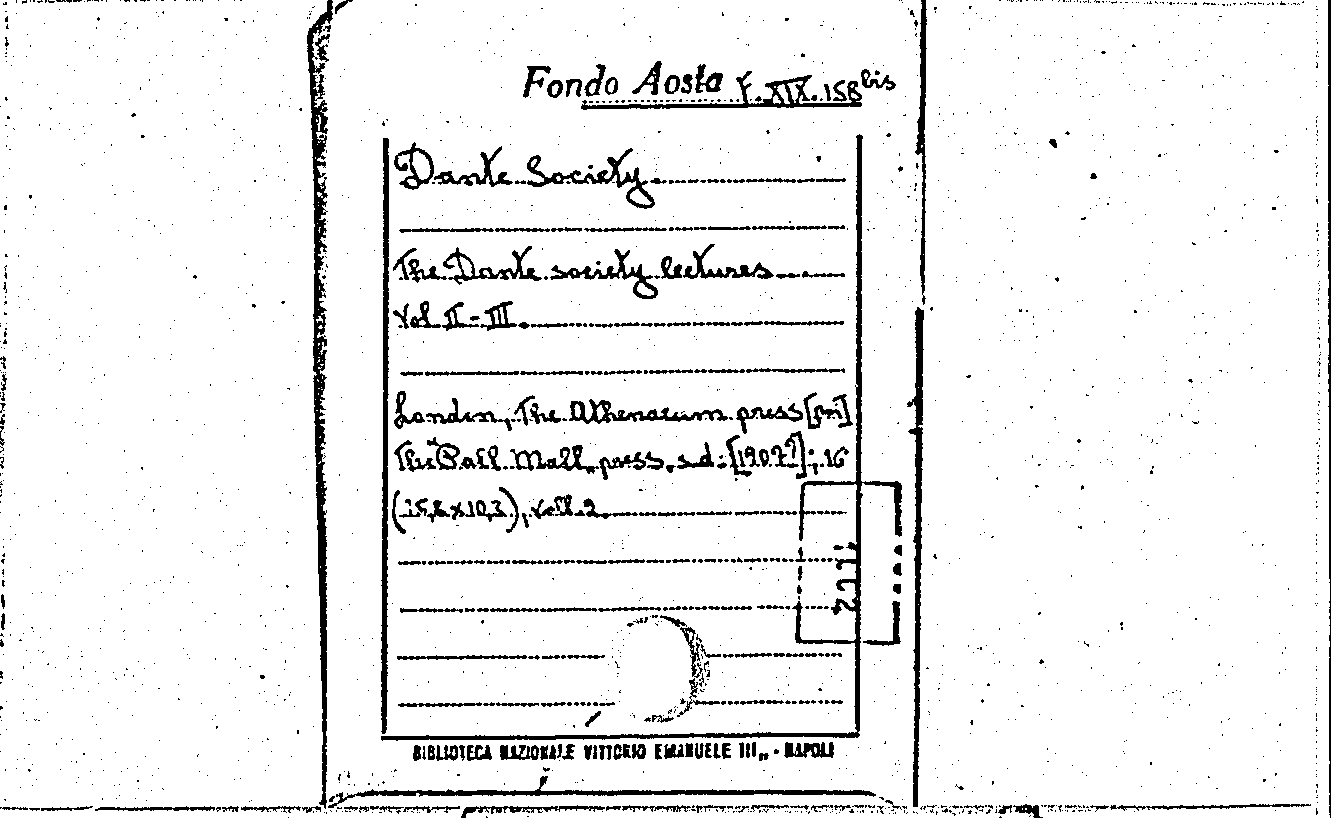 Fondo Aosta F. XIX. 158 bis
Dante Society.
The Dante society lectures
Vol II - III.
London, The Athenaeum press [poi]
The Pall Mall press, s.d. [190??]; 16°
(15,8 x 10,3), voll. 2.
BIBLIOTECA NAZIONALE VITTORIO EMANUELE III„ - NAPOLI